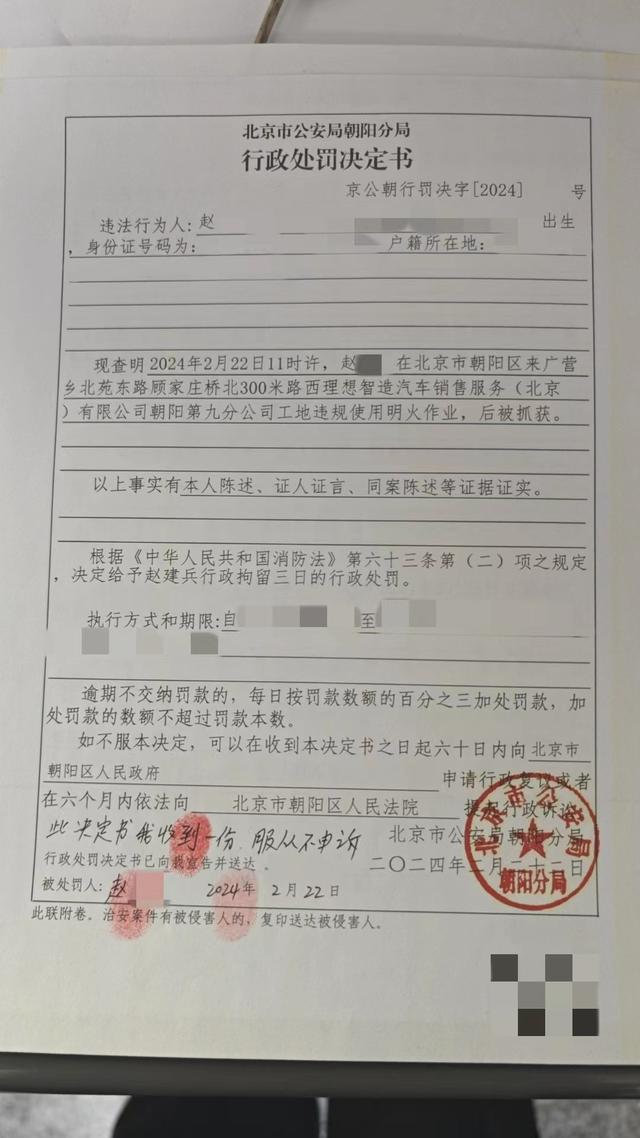 北京市公安局朝阳分局
行政处罚决定书
京公朝行罚决字[2024] 号
违法行为人:赵 出生
，身份证号码为: 户籍所在地:
现查明2024年2月22日11时许，赵 在北京市朝阳区来广营
乡北苑东路顾家庄桥北300米路西理想智造汽车销售服务（北京
）有限公司朝阳第九分公司工地违规使用明火作业，后被抓获。
以上事实有本人陈述、证人证言、同案陈述等证据证实。
根据《中华人民共和国消防法》第六十三条第（二）项之规定
，决定给予赵建兵行政拘留三日的行政处罚。
执行方式和期限:自 至
逾期不交纳罚款的，每日按罚款数额的百分之三加处罚款，加
处罚款的数额不超过罚款本数。
如不服本决定，可以在收到本决定书之日起六十日内向北京市
朝阳区人民政府 申请行政复议或者
在六个月内依法向 北京市朝阳区人民法院 提起行政诉讼
此决定书我收到一份，服从不申诉 北京市公安局朝阳分局
行政处罚决定书已向我宣告并送达。 二〇二四年二月二十二日
被处罚人：赵 2024年2月22日
北京市公安局
朝阳分局
此联附卷。治安案件有被侵害人的，复印送达被侵害人。